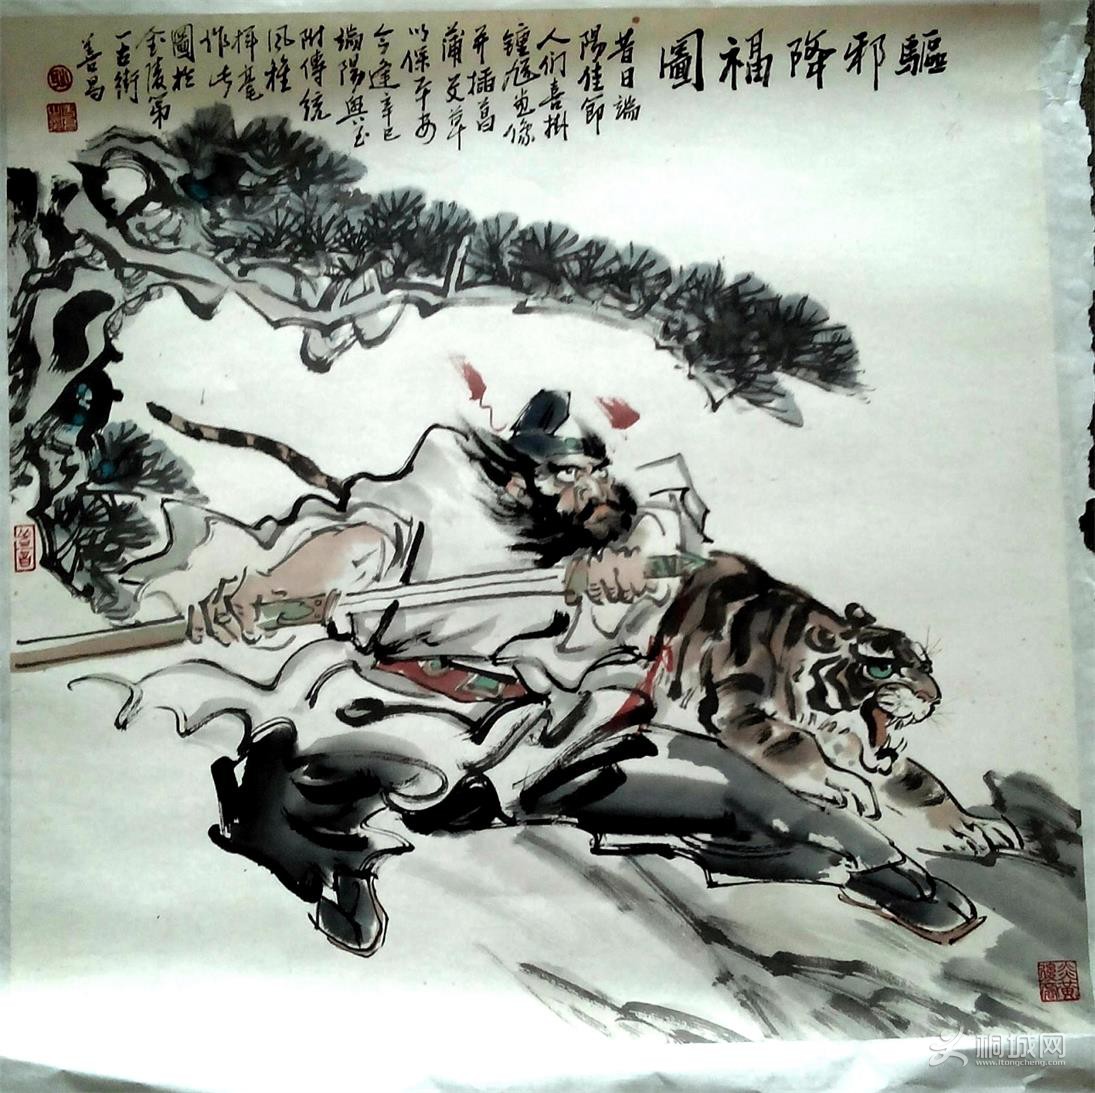 驅邪降福圖
昔日端
陽佳節
人们喜掛
鍾馗畫像
并插菖
蒲艾草
以保平安
今逢辛巳
端陽興至
附傳統
風雅
揮毫
作此
圖於
金陵第
一古街
善昌
炎黃
桐城网
www.itongcheng.com